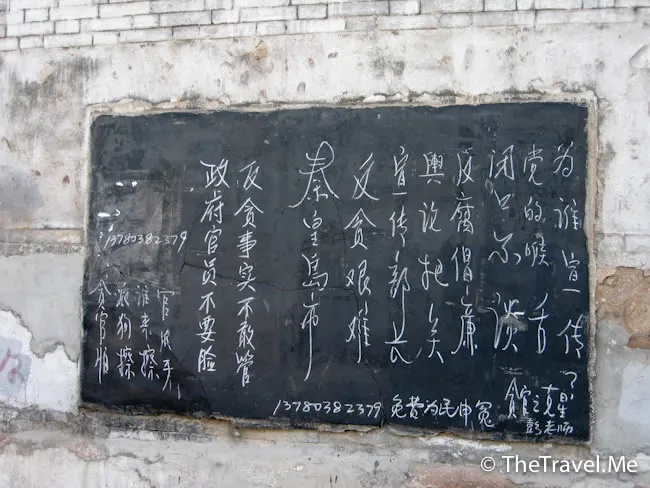 为谁宣传?
党的喉舌
闭口不谈
反腐倡廉
舆论把关
宣传部长
反贪艰难
秦皇岛市
反贪事实不敢管
政府官员不要脸
13780382379
官
谁来擦
狗擦
贪官怕
13780382379 免费为民申冤
贪官之克星
彭老师
© TheTravel.Me